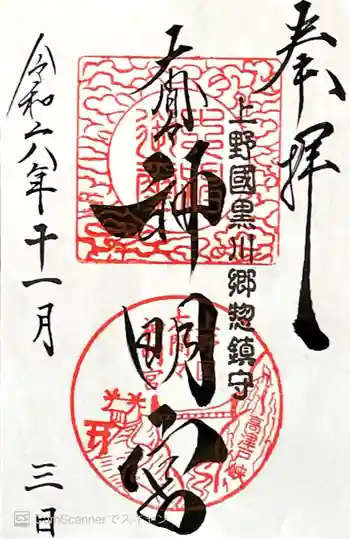 奉拝
上野國黒川郷惣鎮守
大間々
神明宮
令和六年十一月
三日
高津戸峡
CS CamScannerでスキャン